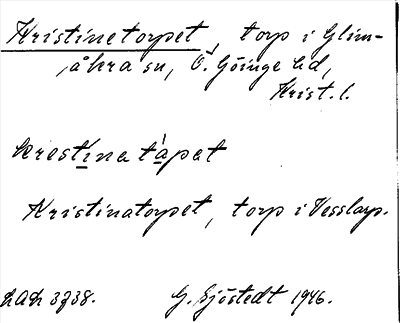 Kristinetorpet, torp i Glim-
åkra sn, Ö. Göinge hd,
Krist. l.
krestina tápat
Kristinatorpet, torp i Vesslarp.
G. Sjöstedt 1946.